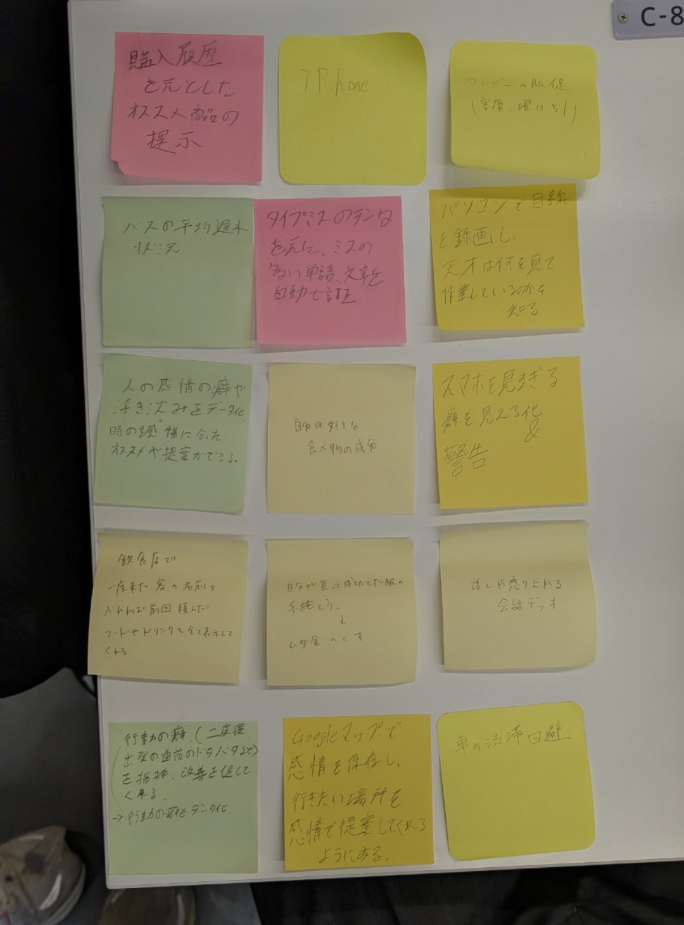 C-8
購入履歴
を元とした
オススメ商品の
提示
iPhone
コンビニの販促
(客層、曜日など)
バスの平均遅れ
状況
タイプミスのデータ
を元に、ミスの
多い単語、文章を
自動で訂正
パソコンで目線
を録画し、
天才は何を見て
作業しているのかを
知る
人の感情の癖や
浮き沈みをデータ化
時の感情に合った
オススメや提案ができる。
自分の好きな
食べ物の成分
スマホを見すぎる
癖を見える化
&
警告
飲食店で
一度来た客の名前を
入れれば前回頼んだ
フードやドリンクを全て表示して
くれる
自分が買って成功した服の
系統とう。
ムダ金へらす
話しが盛り上がる
会話デッキ
行動の癖、(二度寝
出発の直前のドタバタなど)
を指摘、改善を促して
くれる
→行動の癖をデータ化
Googleマップで
感情を保存し、
行きたい場所を
感情で提案してくれる
ようにする。
車の渋滞回避